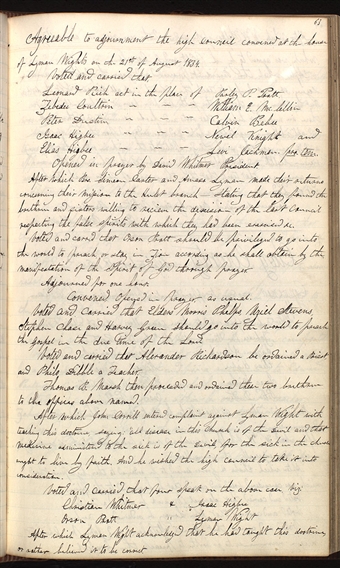 Agreeable to adjournment the high council convened at the house
of Lyman Wights on the 21st of August 1834.
Voted and carried that
Leonard Rich act in the place of Parley P. Pratt
Zebedee Coultrin " " " William E. McLellin
Peter Dustin " " " Calvin Bebee
Isaac Higbee " " " Newel Knight and
Elias Higbee " " " Levi Jackman pro tem.
Opened in prayer by David Whitmer President
After which bro Simeon Carter and Amasa Lyman made their returns
concerning their mission to the Hulet branch Stating that they found the
brethren and sisters willing to receive the decission of the last Council
respecting the false spirits with which they had been exercised &c.
Voted and carrid that Orson Pratt should be priviliged to go into
the world to preach or stay in Zion according as he shall obtain by the
manifestation of the Spirit of God through prayer
Adjourned for one hour.
Convened Opened in Prayer as usual.
Voted and Carried that Elders Morris Phelps Uziel Stevens,
Stephen Chase and Harvey Green should go into the world to preach
the gospel in the due time of the Lord.
Voted and carried that Alexander Richardson be ordained a Priest
and Philo Dibble a Teacher.
Thomas B. Marsh then proceeded and ordained these two brethren
to the offices above named.
After which John Corrill entered complaint against Lyman Wight with
teaching this doctrine saying: All disease in this Church is of the devil and that
medicine administered to the sick is of the devil, for the sick in the church
ought to live by faith. And he wished the high council to take it into
consideration.
Voted and carried that four speak on the above case viz
Christian Whitmer & Isaac Higbee
Orson Pratt Lyman Wight
After which Lyman Wight acknowledged that he had taught this doctrine
or rather believed it to be correct